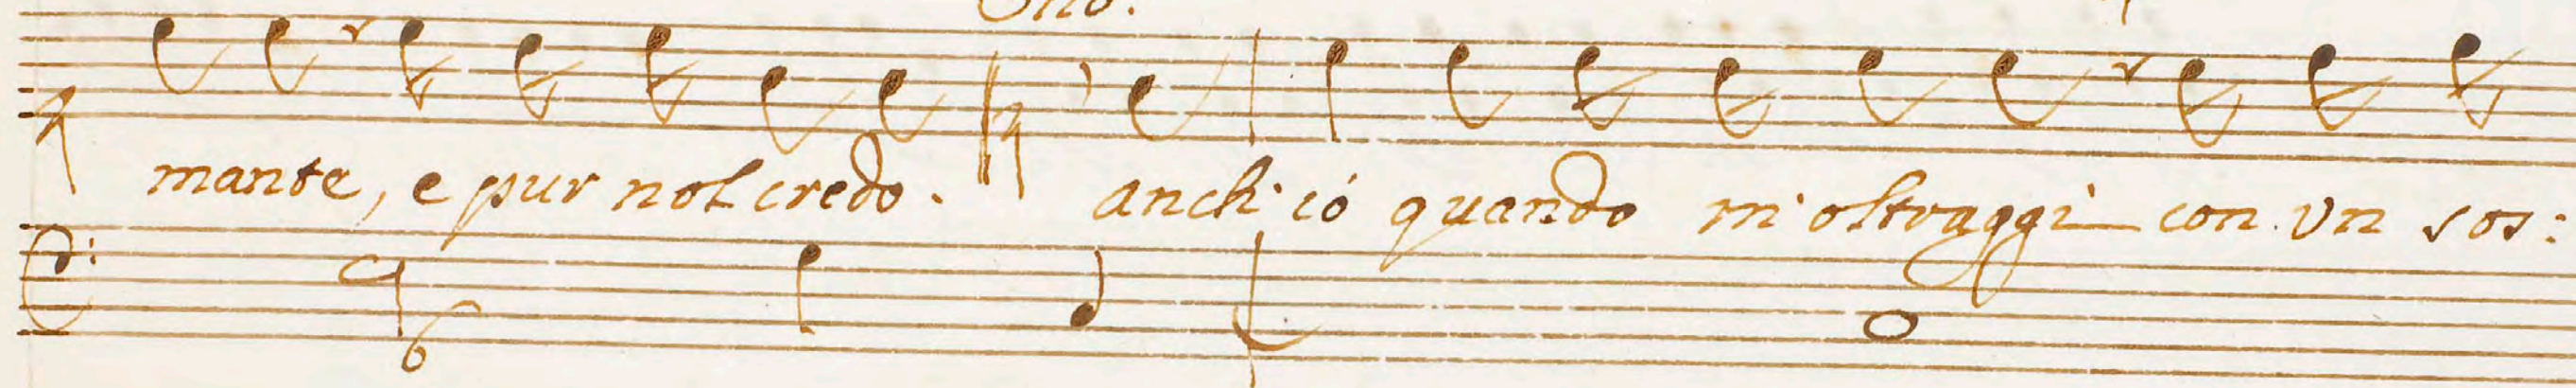 mante, e pur nol credo. anch'ió quando m'oltraggi con un sos:
6